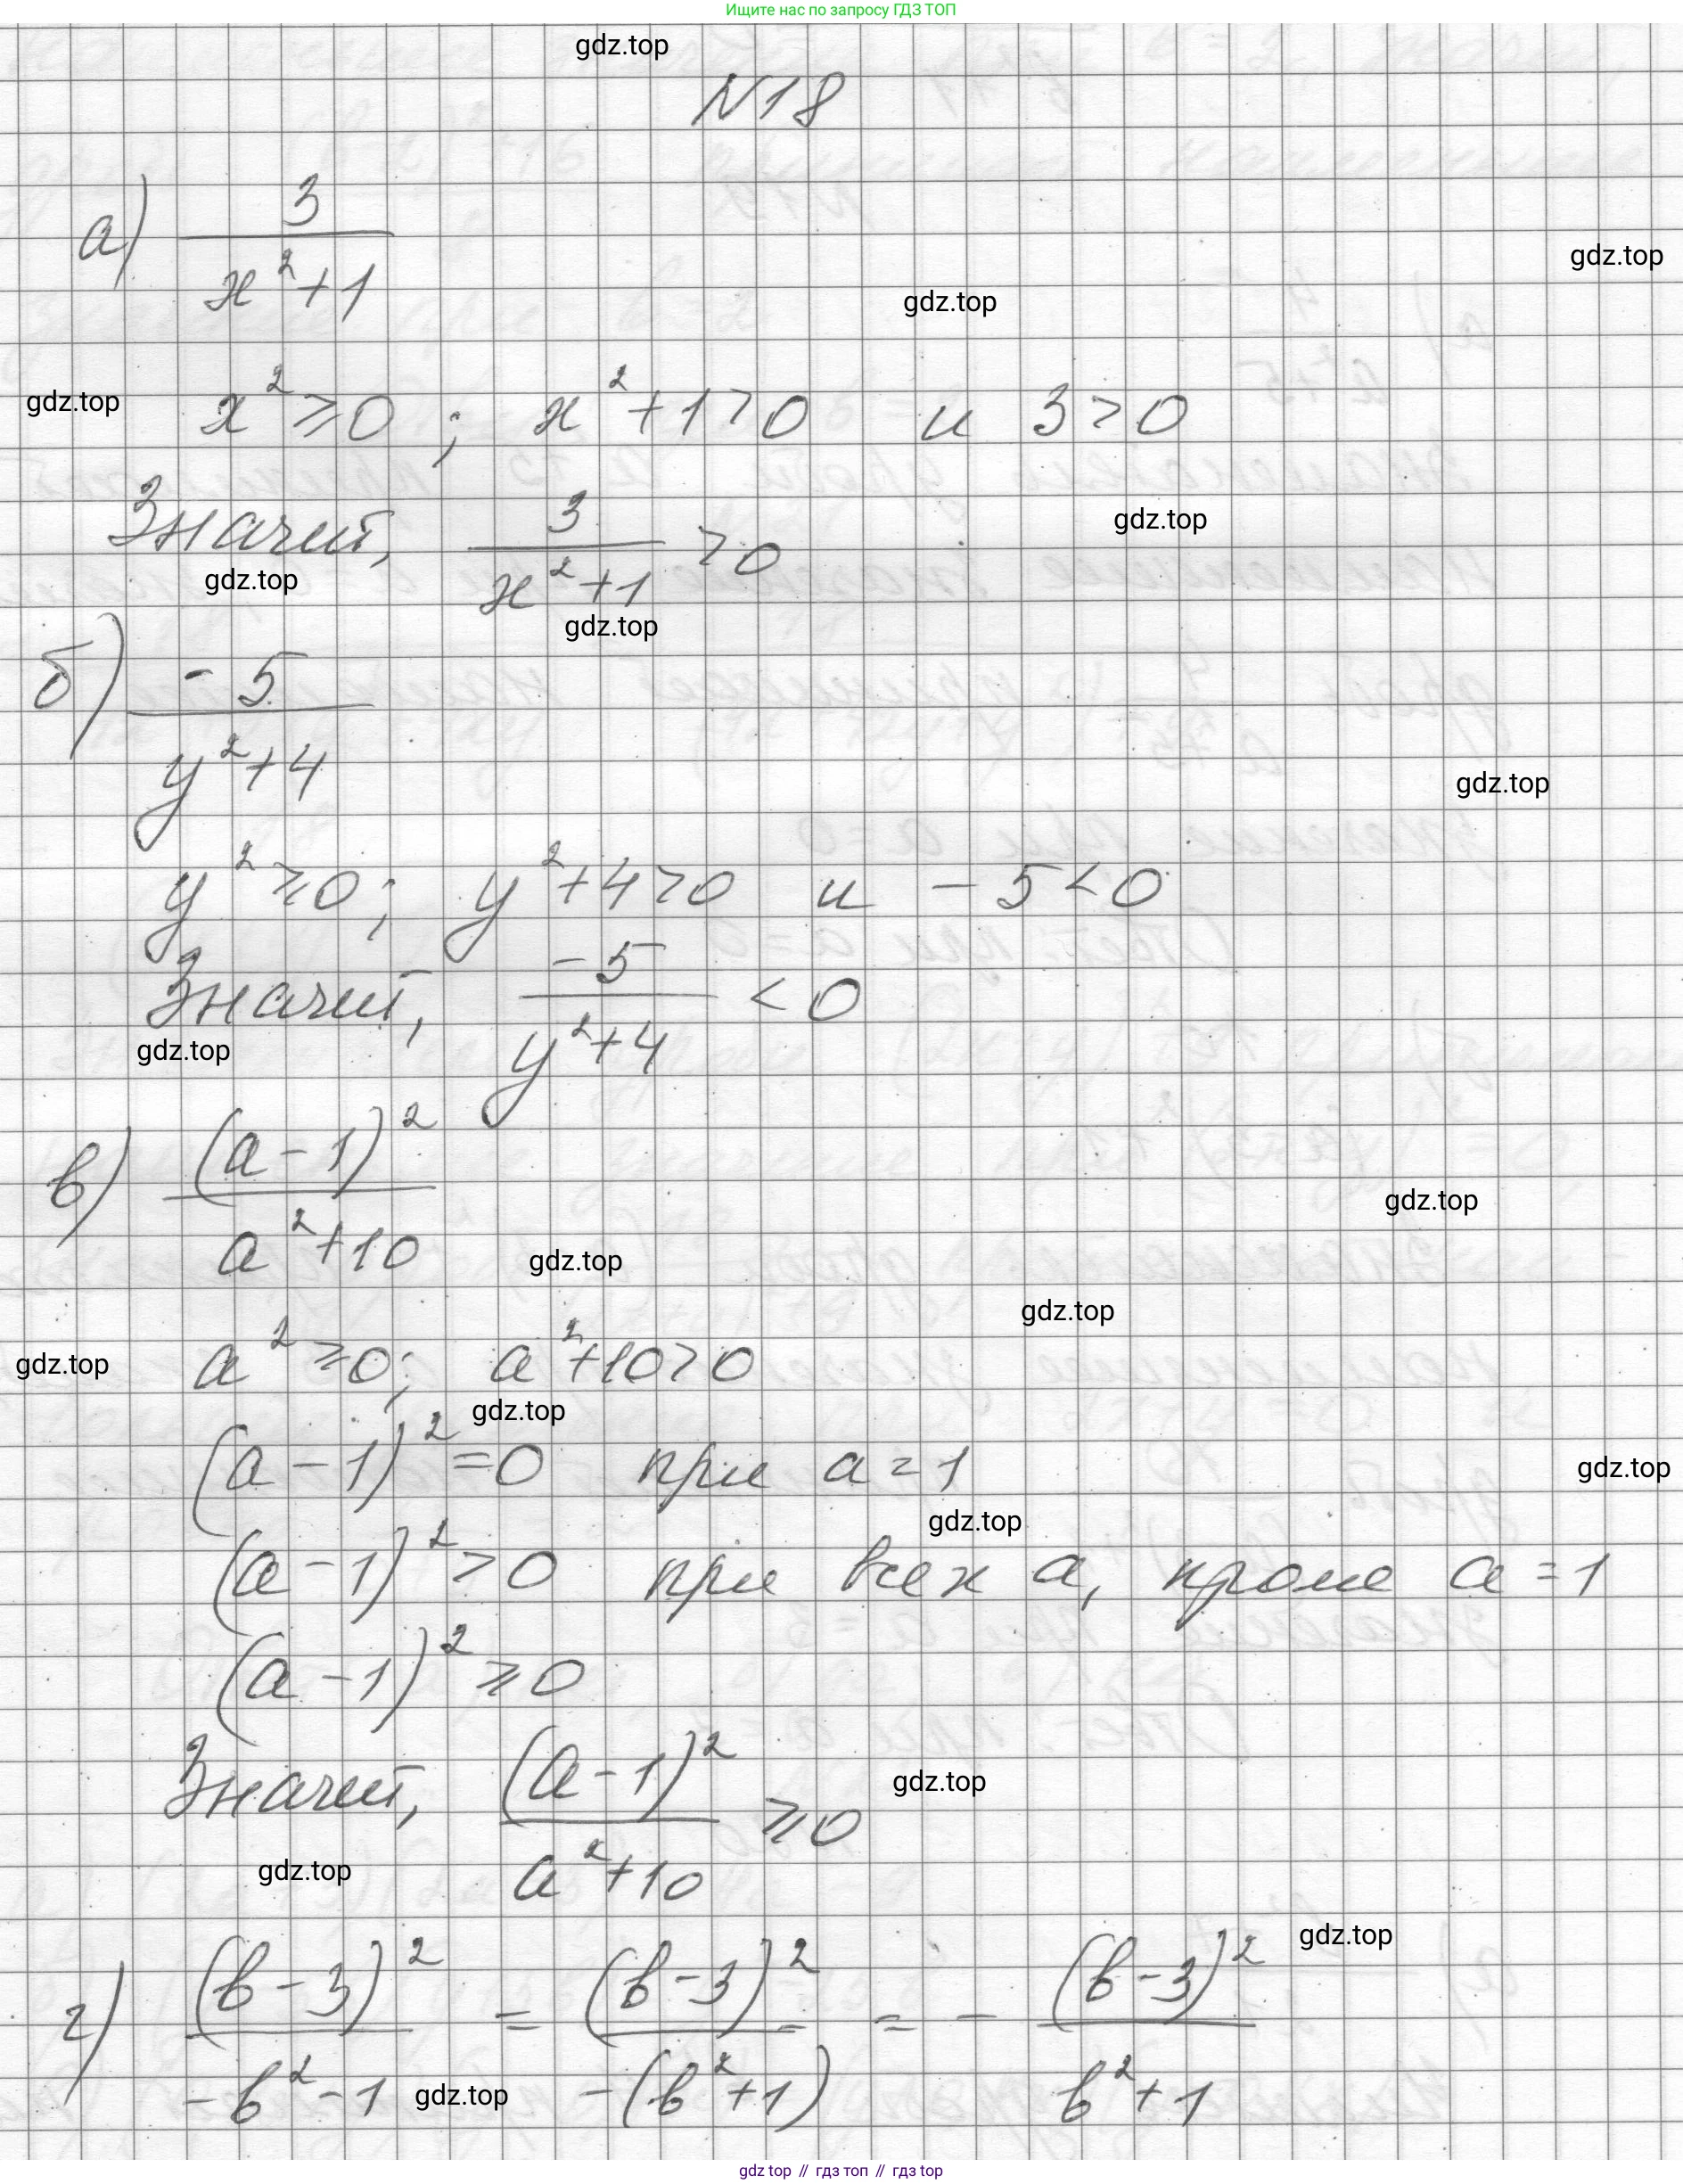 Ищите нас по запросу ГДЗ ТОП
gdz.top
N18
а) 3 / (x² + 1)
gdz.top
gdz.top
gdz.top
x² ⩾ 0 ; x² + 1 > 0 и 3 > 0
Значит, 3 / (x² + 1) > 0
gdz.top
gdz.top
gdz.top
б) -5 / (y² + 4)
gdz.top
y² ⩾ 0 ; y² + 4 > 0 и -5 < 0
Значит, -5 / (y² + 4) < 0
gdz.top
в) (a - 1)² / (a² + 10)
gdz.top
gdz.top
gdz.top
gdz.top
a² ⩾ 0 ; a² + 10 > 0
gdz.top
(a - 1)² = 0 при a = 1
gdz.top
gdz.top
(a - 1)² > 0 при всех a, кроме a = 1
(a - 1)² ⩾ 0
Значит, (a - 1)² / (a² + 10) ⩾ 0
gdz.top
gdz.top
gdz.top
г) (b - 3)² / (-b² - 1) = (b - 3)² / (-(b² + 1)) = - (b - 3)² / (b² + 1)
gdz.top
gdz top // гдз топ // гдз top